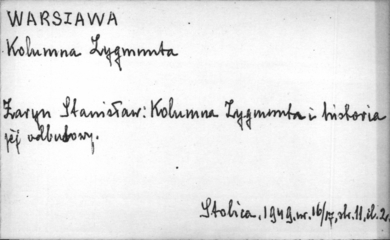 WARSIAWA
Kolumna Zygmunta
Żaryn Stanisław: Kolumna Zygmunta i historia
jej odbudowy.
Stolica, 1949. nr. 16/17, str. 11, il. 2.